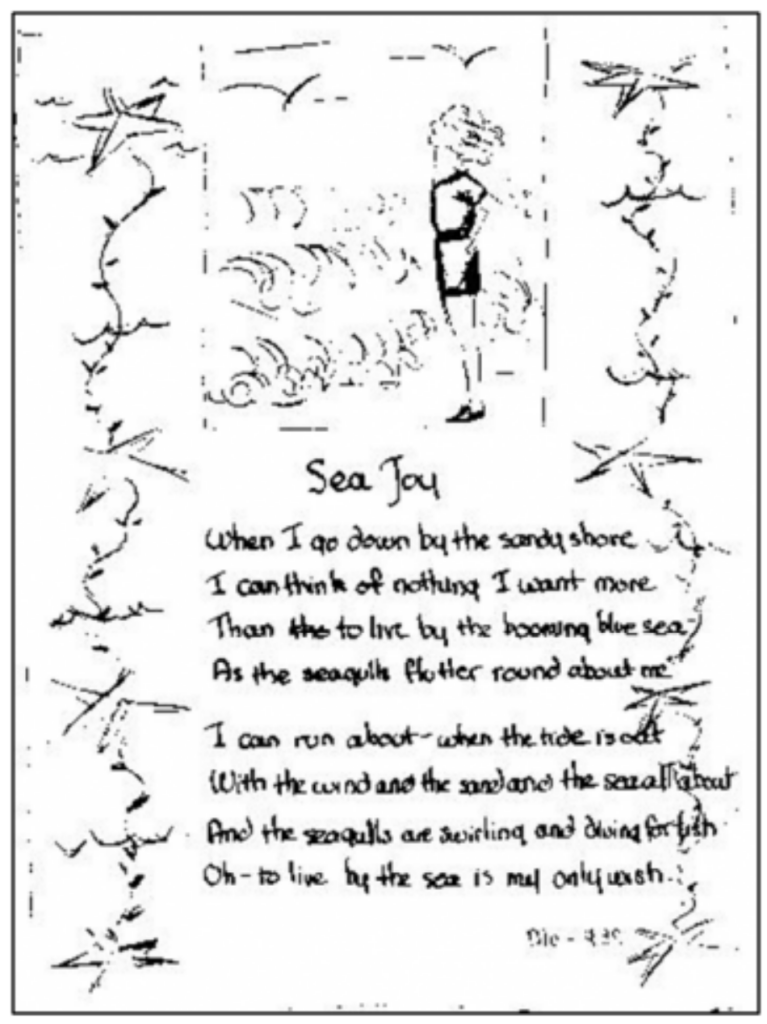 Sea Joy
When I go down by the sandy shore
I can think of nothing I want more
Than to live by the booming blue sea
As the seagulls flutter round about me
I can run about - when the tide is out
With the wind and the sand and the sea all about
And the seagulls are swirling and diving for fish
Oh - to live by the sea is my only wish.